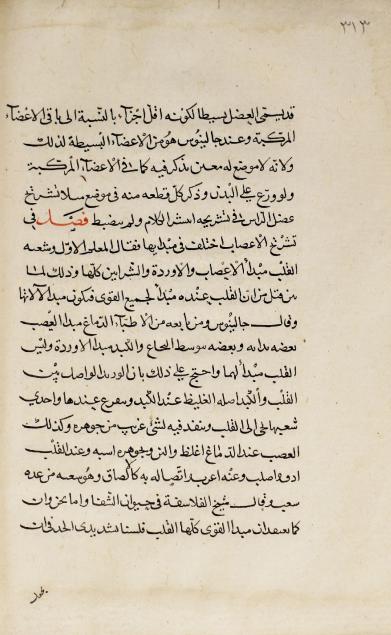 ٣١٣
قد يسمى العضل بسيطا لكونه اقل اجزآء بالنسبة الى باقى الاعضآء
المركبة وعند جالينوس هو من الاعضآء البسيطة لذلك
ولانه لا موضع له معين يذكر فيه كما فى الاعضآء المركبة
ولو وزع على البدن وذكر كل قطعه منه فى موضع مثلا تشريح
عضل الراس فى تشريحه انتشر الكلام ولم ينضبط فصل فى
تشريح الاعصاب اختلف فى مبدأيها فقال المعلم الاول وشيعه
القلب مبدأ الاعصاب والاوردة والشرايين كلها وذلك لما
من ان القلب عنده مبدأ لجميع القوى فيكون مبدأ لآلاتها
وقال جالينوس ومن تابعه من الاطبآء الدماغ مبدأ العصب
بعضه بذاته وبعضه بتوسط النخاع والكبد مبدأ الاوردة وليس
القلب مبدأ لهما واحتج على ذلك بان الوريد الواصل بين
القلب والكبد اصله الغليظ عند الكبد ويتفرع عندها واحدى
شعبها تجى الى القلب وينفذ فيه لشئ غريب من جوهره وكذلك
العصب عند الدماغ اغلظ والين وجوهره اشبه وعند القلب
ادق واصلب وعنه اغرب اتصاله به كالصاق وهو
وقال شيخ الفلاسفة فى حيوان الشفا واما نحن وان
كنا نعتقد ان مبدأ القوى كلها القلب فلسنا شديدى الحد فى ان